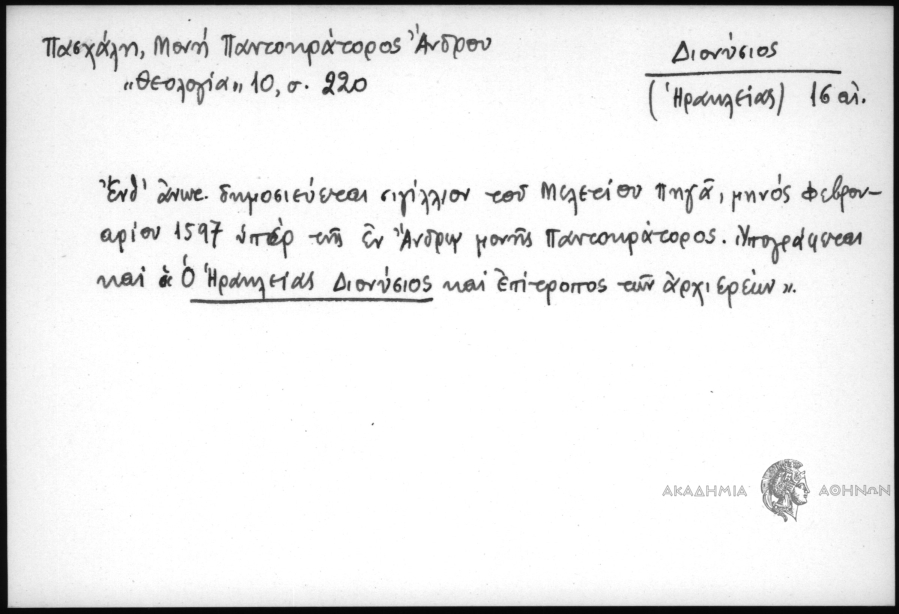 Πασχάλη, Μονή Παντοκράτορος Ἄνδρου
«Θεολογία» 10, σ. 220
Διονύσιος
(Ἡρακλείας) 16 αἰ.
Ἔνθ' ἄνωτ. δημοσιεύεται σιγίλλιον τοῦ Μελετίου Πηγᾶ, μηνός Φεβρου-
αρίου 1597 ὑπέρ τῆς ἐν Ἄνδρῳ μονῆς Παντοκράτορος. Ὑπογράφεται
καί «Ὁ Ἡρακλείας Διονύσιος καί ἐπίτροπος τῶν ἀρχιερέων».
ΑΚΑΔΗΜΙΑ ΑΘΗΝΩΝ